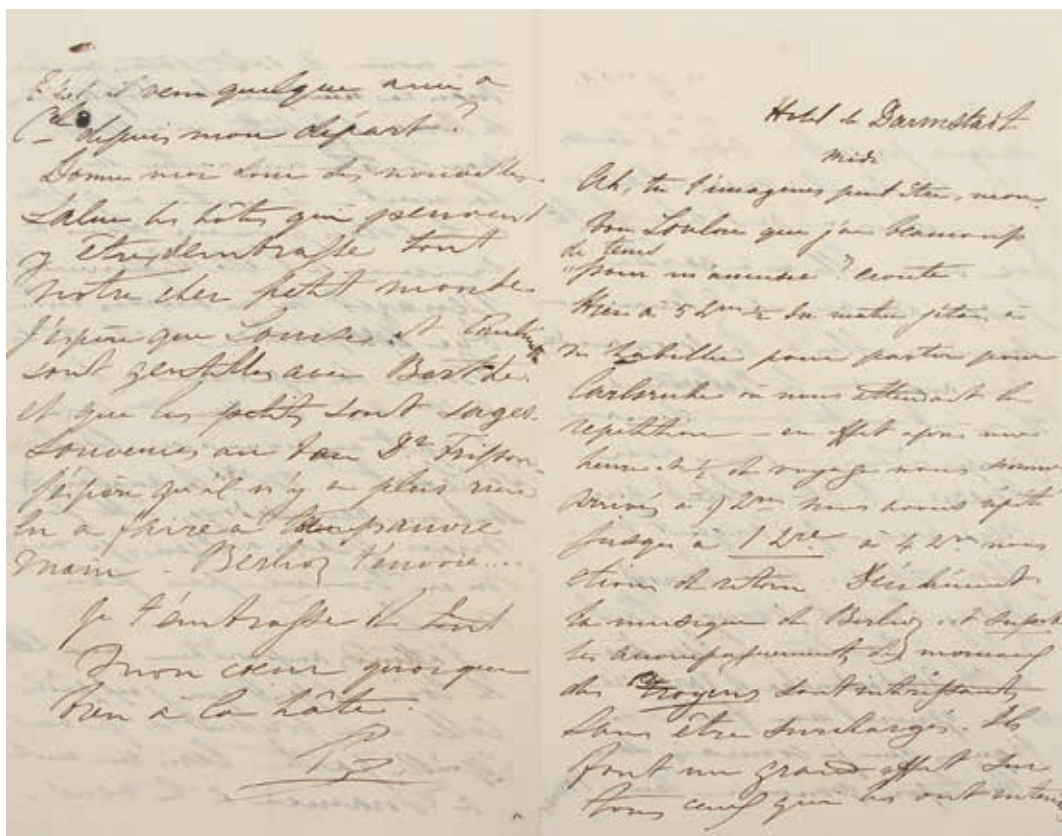 Est-il venu quelque ami à
Ctel depuis mon départ?
Donne moi donc des nouvelles.
Salue les hôtes qui peuvent
y être, embrasse tout
notre cher petit monde.
J'espère que Louise et Pauline
sont gentilles avec Berthe
et que les petits sont sages.
Souvenirs au bon Dr Frisson.
J'espère qu'il n'y a plus rien
à faire à ta pauvre
main - Berlioz t'envoie....
Je t'embrasse de tout
mon coeur quoique
bien à la hâte.
Hotel de Darmstadt
midi
Ah, tu t'imagines peut être, mon
bon Loulou que j'ai beaucoup
de tems
pour m'amuser? écoute
Hier à 5 du matin j'étais à
m'habiller pour partir pour
Carlsruhe où nous attendait la
répétition - en effet après une
heure et ½ de voyage nous sommes
arrivés à 9 nous avons répété
jusqu'à 1 à 4 nous
étions de retour. Décidément
la musique de Berlioz est superbe
les accompagnements des morceaux
des Troyens sont intéressants
sans être surchargés. Ils
font un grand effet sur
tous ceux qui les ont entendu